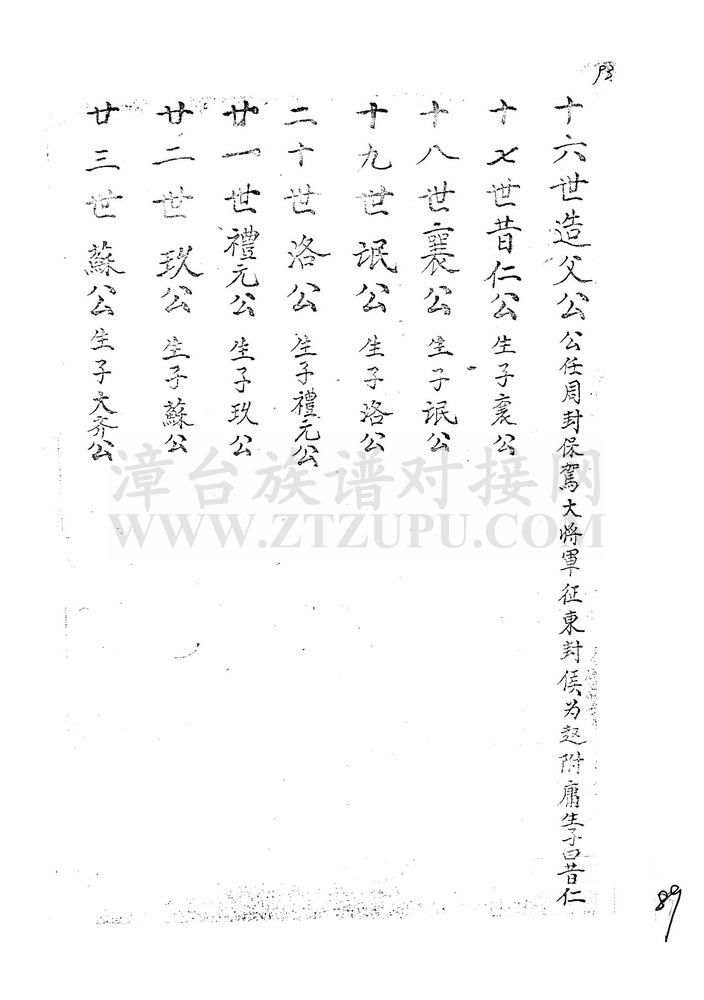 十六世造父公公任周封保駕大將軍征東封侯为趙附庸生子曰昔仁
十七世昔仁公生子襄公
十八世襄公生子氓公
十九世氓公生子洛公
二十世洛公生子禮元公
廿一世禮元公生子玖公
廿二世玖公生子蘇公
廿三世蘇公生子大齐公
漳台族谱对接网
WWW.ZTZUPU.COM
89